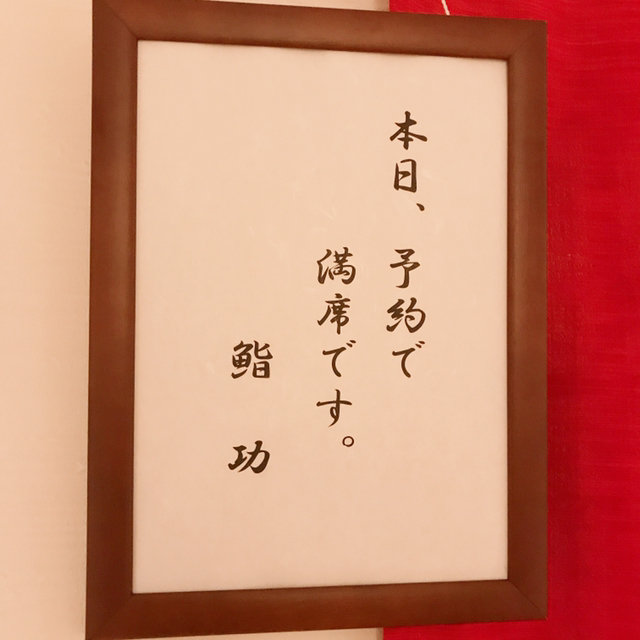 本日、予約で
満席です。
鮨 功